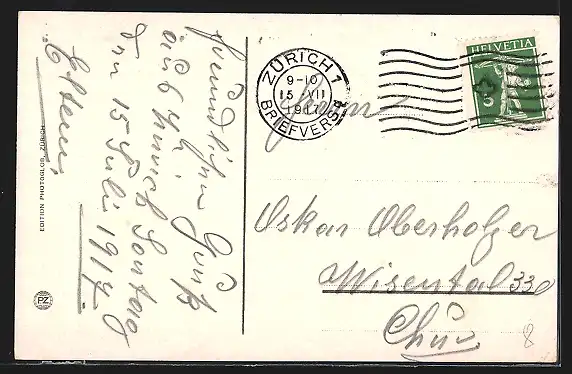 Freundlichen Gruß
aus Zürich Sontag
den 15 Juli 1917
Eltern.
EDITION PHOTOGLOB, ZÜRICH
PZ
ZÜRICH 1
9-10
15 VII
1917
BRIEFVERSD
HELVETIA
Oskar Oberholzer
Wisental 33
Chur
8